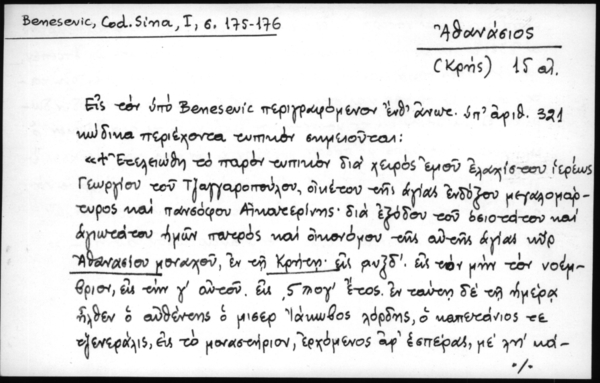 Benesevic, Cod. Sina, I, σ. 175-176
Ἀθανάσιος
(Κρής) 15 αἰ.
Εἰς τὸν ὑπὸ Benesevic περιγραφόμενον ἔνθ' ἄνωτ. ὑπ' ἀριθ. 321
κώδικα περιέχοντα τυπικὸν σημειοῦται:
«+ Ἐτελειώθη τὸ παρὸν τυπικὸν διὰ χειρὸς ἐμοῦ ἐλαχίστου ἱερέως
Γεωργίου τοῦ Τζαγγαροπούλου, οἰκέτου τῆς ἁγίας ἐνδόξου μεγαλομάρ-
τυρος καὶ πανσόφου Αἰκατερίνης· διὰ ἐξόδου τοῦ ὁσιοτάτου καὶ
ἁγιωτάτου ἡμῶν πατρὸς καὶ οἰκονόμου τῆς αὐτῆς ἁγίας κῦρ
Ἀθανασίου μοναχοῦ, ἐν τῇ Κρήτῃ· εἰς αυξδ'. εἰς τὸν μὴν τὸν νοέμ-
βριον, εἰς τὴν γ' αὐτοῦ. εἰς ,5πογ' ἔτος. ἐν ταύτῃ δὲ τῇ ἡμέρᾳ
ἦλθεν ὁ αὐθέντης ὁ μισερ Ἰάκωβος λόρδης, ὁ καπετάνιος τε
τζενεράλις, εἰς τὸ μοναστήριον, ἐρχόμενος ἀφ' ἑσπέρας, μὲ λη' κά-
·/·